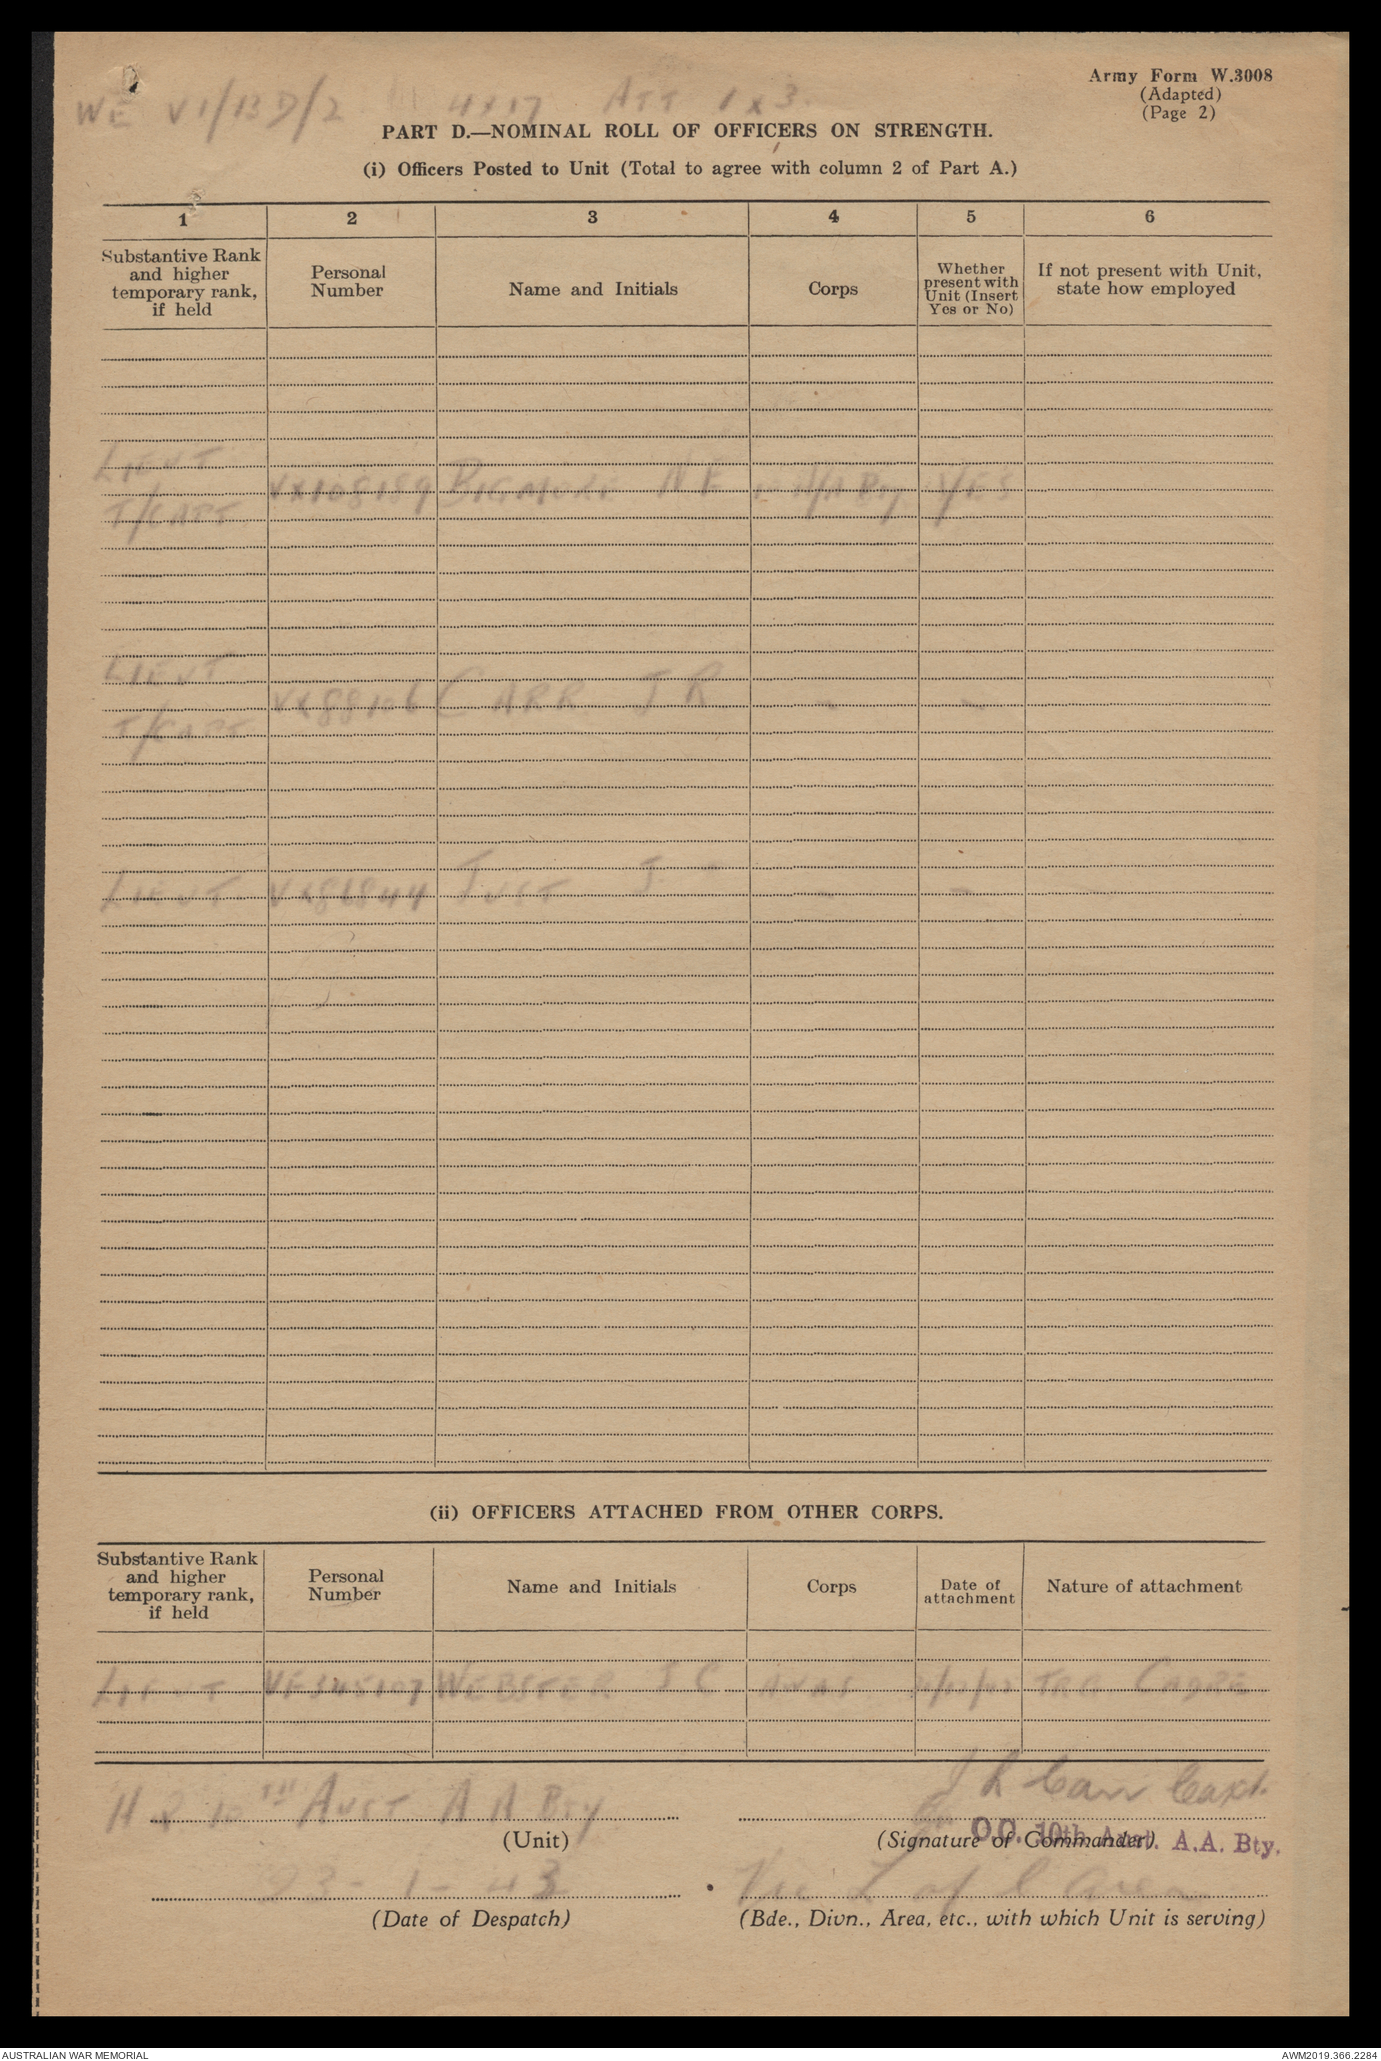 Army Form W.3008
(Adapted)
(Page 2)
WE V1/13D/2 4x17 ATT 1x3.
PART D.—NOMINAL ROLL OF OFFICERS ON STRENGTH.
(i) Officers Posted to Unit (Total to agree with column 2 of Part A.)
1 2 3 4 5 6
Substantive Rank and higher temporary rank, if held
Personal Number
Name and Initials
Corps
Whether present with Unit (Insert Yes or No)
If not present with Unit, state how employed
LIEUT
T/CAPT VX108159 BIGMORE N E A/A Bty YES
LIEUT
T/CAPT VX88106 CARR J R " "
LIEUT VX86844 JUST J " "
(ii) OFFICERS ATTACHED FROM OTHER CORPS.
Substantive Rank and higher temporary rank, if held
Personal Number
Name and Initials
Corps
Date of attachment
Nature of attachment
LIEUT VF345107 WEBSTER J C AWAS TRG CADRE
HQ 10TH AUST A A Bty
J R Carr Capt.
(Unit)
(Signature of Commander)
O.C. 10th Aust. A.A. Bty.
23-1-43
Vic L of C Area
(Date of Despatch)
(Bde., Divn., Area, etc., with which Unit is serving)
AUSTRALIAN WAR MEMORIAL
AWM2019.366.2284